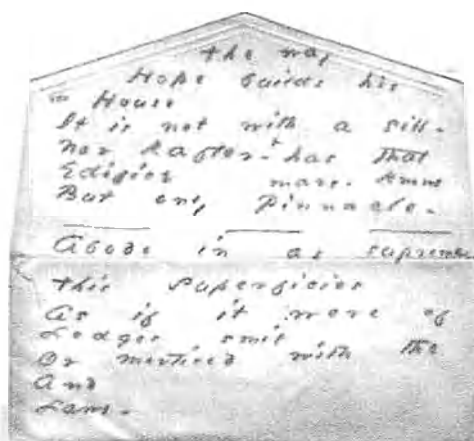 the way
Hope builds his
House
It is not with a sill -
Nor Rafter - has that
Edifice mars -
But only Pinnacle -
Abode in as supreme
this superficies
As if it were of
Ledges smit
Or mortised with the
And
Laws -